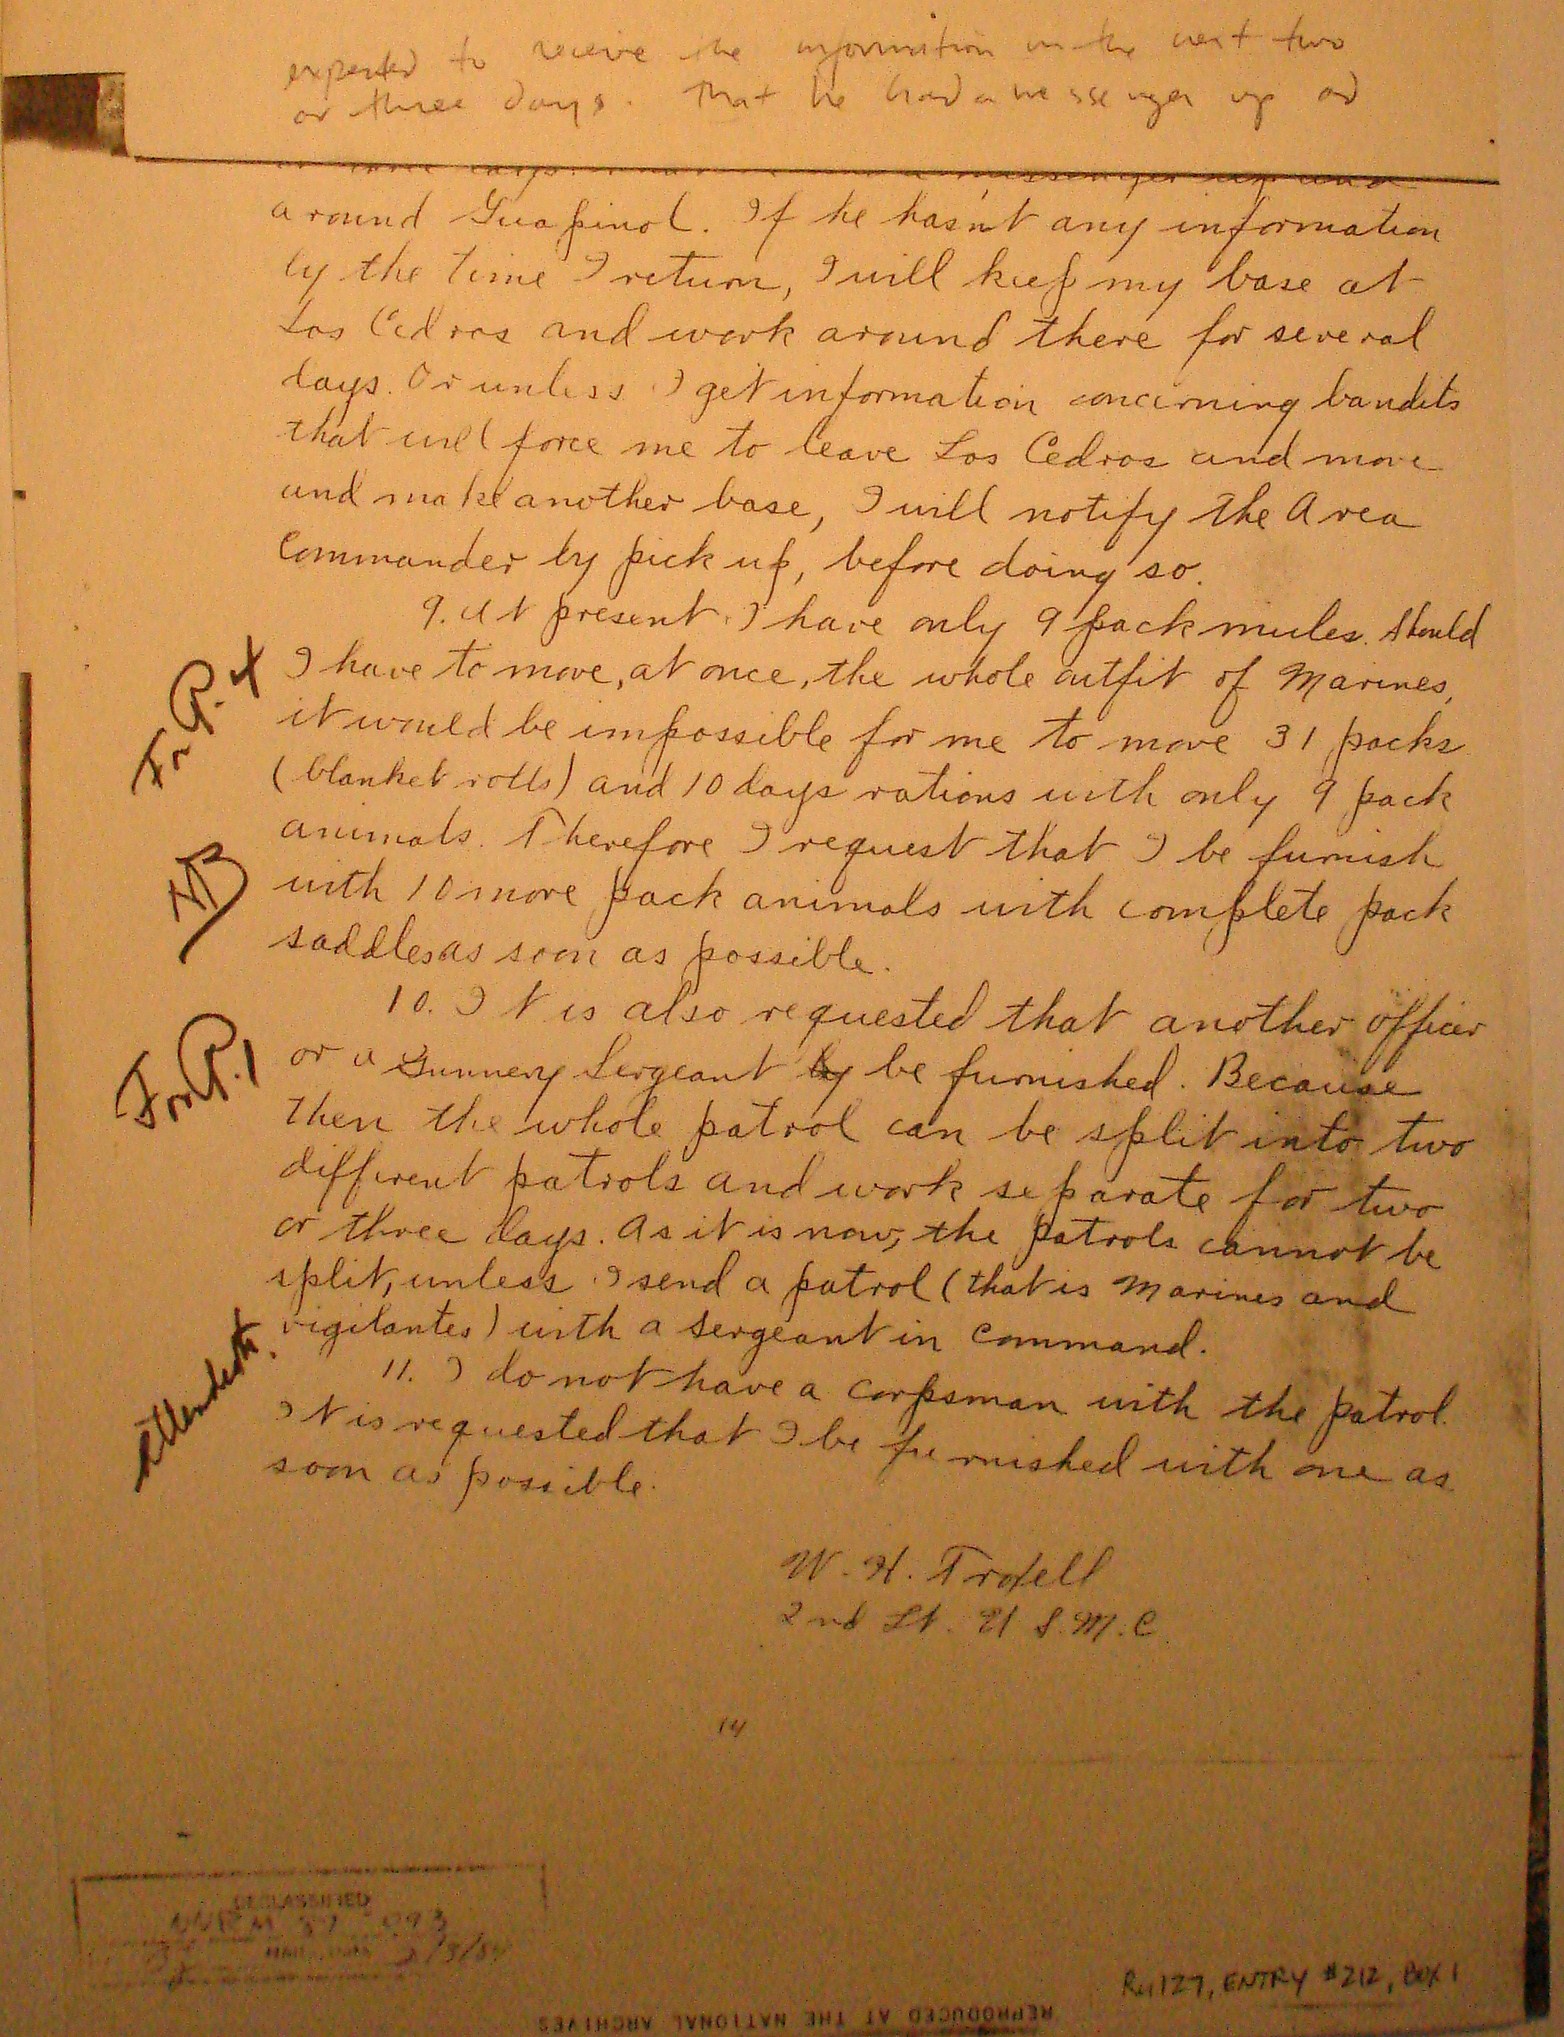 expected to receive the information in the next two
or three days. That he had a messenger up ad
or three days. that he had a messenger up and
around Guapinol. If he hasn't any information
by the time I return, I will keep my base at
Los Cedros and work around there for several
days. Or unless I get information concerning bandits
that will force me to leave Los Cedros and move
and make another base, I will notify the Area
Commander by pick up, before doing so.
9. At present I have only 9 pack mules. Should
I have to move, at once, the whole outfit of Marines,
it would be impossible for me to move 31 packs
(blanket rolls) and 10 days rations with only 9 pack
animals. Therefore I request that I be furnish
with 10 more pack animals with complete pack
saddles as soon as possible.
10. It is also requested that another officer
or a Gunnery Sergeant by be furnished. Because
then the whole patrol can be split into two
different patrols and work separate for two
or three days. As it is now, the patrols cannot be
split, unless I send a patrol (that is Marines and
vigilantes) with a sergeant in command.
11. I do not have a corpsman with the patrol.
It is requested that I be furnished with one as
soon as possible.
W. H. Troxell
2nd Lt. U S.M.C
14
NB
DECLASSIFIED
RG127, ENTRY #212, BOX 1
REPRODUCED AT THE NATIONAL ARCHIVES